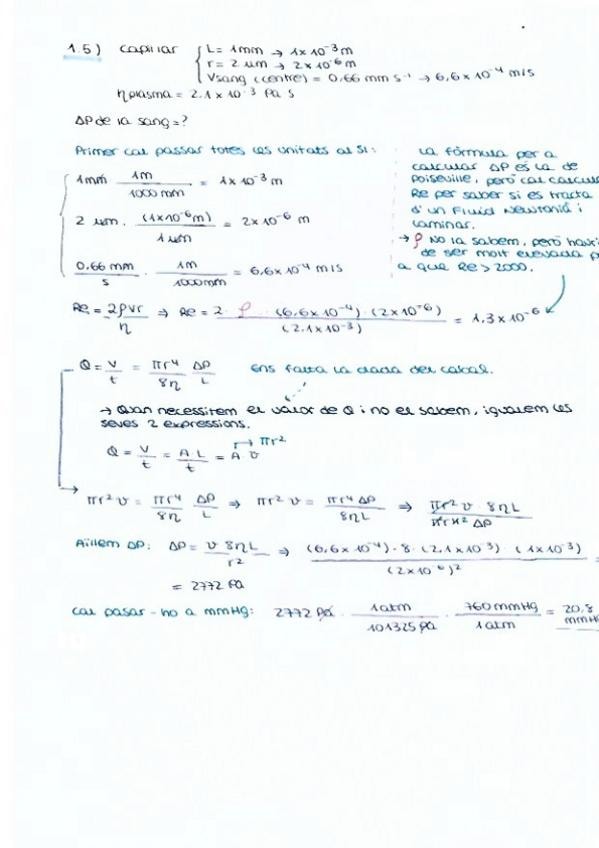 1.5) capil·lar { L = 1mm → 1x10⁻³ m
r = 2 um → 2x10⁻⁶ m
Vsang (centre) = 0,66 mm s⁻¹ → 6,6x10⁻⁴ m/s
η plasma = 2.1 x 10⁻³ Pa s
ΔP de la sang = ?
Primer cal passar totes les unitats al SI:
1mm · 1m / 1000 mm = 1x10⁻³ m
2 um · (1x10⁻⁶m) / 1 um = 2x10⁻⁶ m
0,66 mm / s · 1m / 1000mm = 6,6x10⁻⁴ m/s
La fórmula per a
calcular ΔP és la de
Poiseville, però cal
Re per saber si es tracta
d'un Fluid Newtonià i
laminar.
→ ρ No la sabem, però
de ser molt elevada
a que Re > 2000.
Re = 2ρvr / η ⇒ Re = 2 · ρ (6,6x10⁻⁴) · (2x10⁻⁶) / (2.1x10⁻³) = 1,3x10⁻⁶
Q = V / t = πr⁴ / 8η ΔP / L Ens falta la dada del cabal.
→ Quan necessitem el valor de Q i no el sabem, igualem les
seves 2 expressions.
Q = V / t = A.L / t = A. v → πr²
πr² v = πr⁴ / 8η ΔP / L ⇒ πr² v = πr⁴ ΔP / 8ηL ⇒ πr² v · 8ηL / ΔP
Aïllem ΔP: ΔP = v 8ηL / r² ⇒ (6,6x10⁻⁴) · 8 · (2,1x10⁻³) (1x10⁻³) / (2x10⁻⁶)² =
= 2772 Pa
cal pasar-ho a mmHg: 2772 Pa · 1atm / 101325 Pa · 760 mmHg / 1atm = 20,8